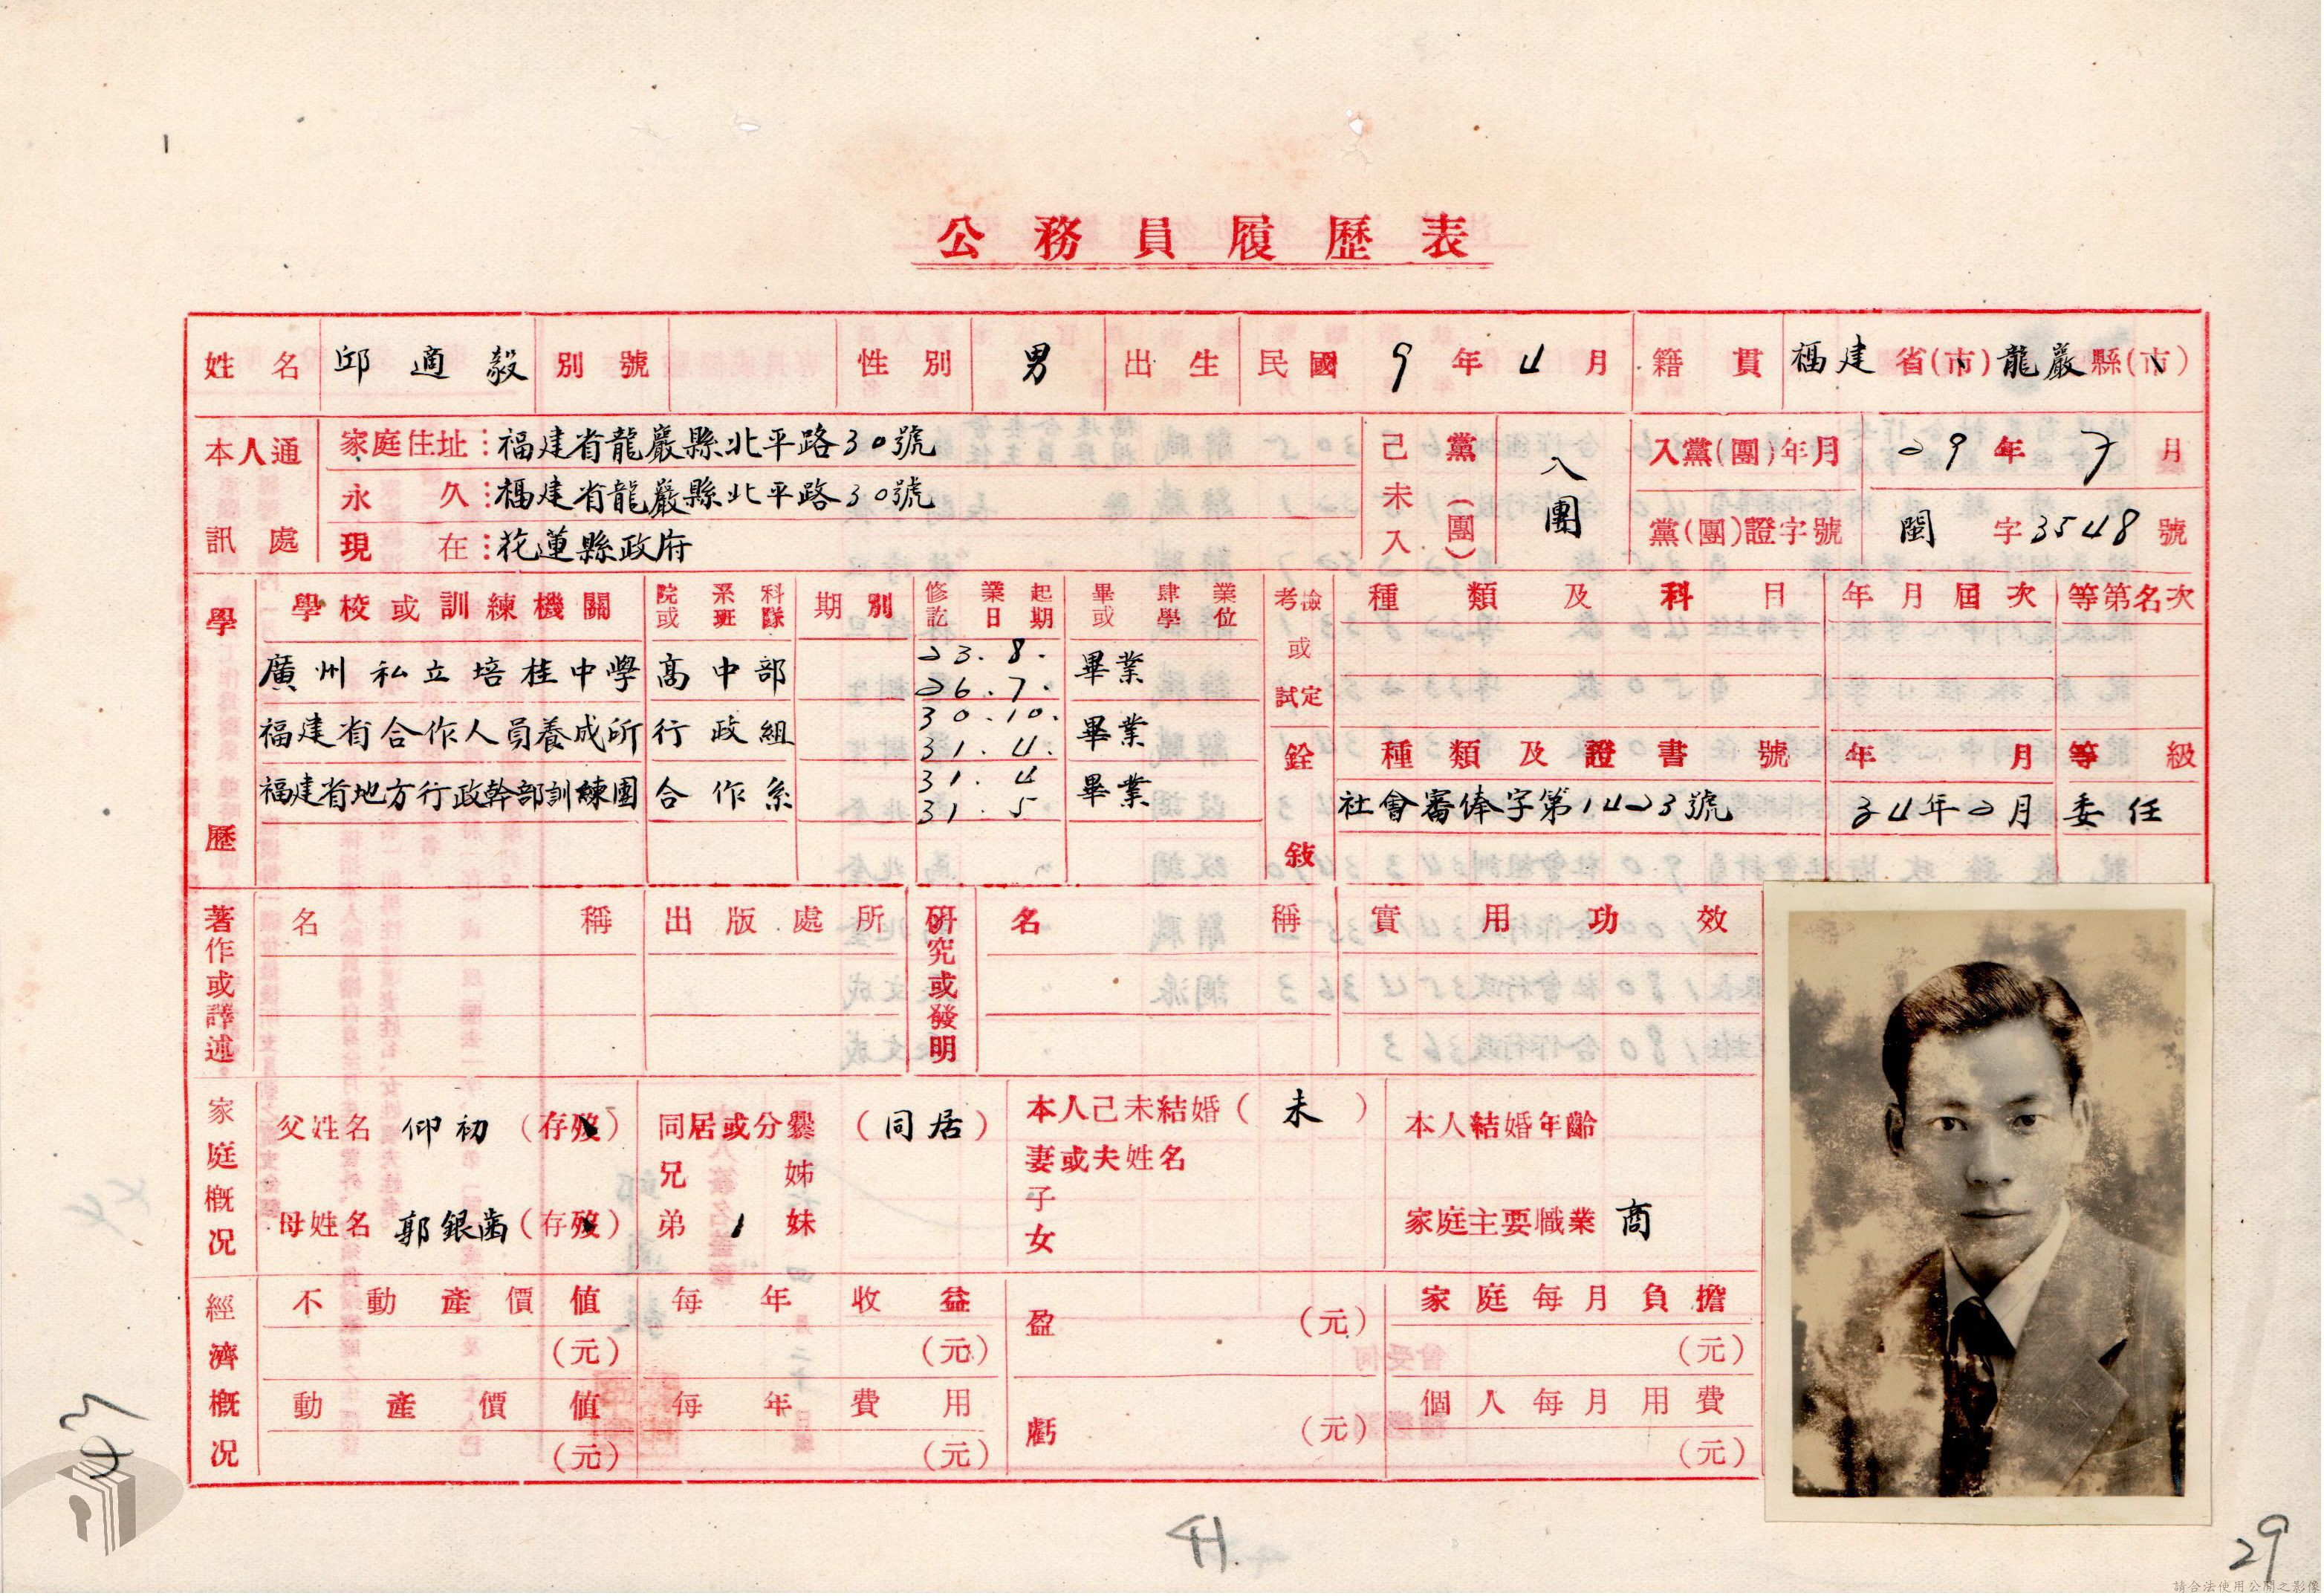 公務員履歷表
姓名 邱適毅 別號 性別 男 出生 民國9年4月 籍貫 福建省(市)龍巖縣(市)
本人通訊處
家庭住址：福建省龍巖縣北平路30號
永久：福建省龍巖縣北平路30號
現在：花蓮縣政府
己未入黨(團) 入團
入黨(團)年月 29年7月
黨(團)證字號 閩字3548號
學歷
學校或訓練機關 院或系班科隊 期別 修業起訖日期 畢或肄學業位
廣州私立培桂中學 高中部 23.8. 26.7. 畢業
福建省合作人員養成所 行政組 30.10. 31.4. 畢業
福建省地方行政幹部訓練團 合作系 31.4 31.5 畢業
考檢或試定 種類及科目 年月屆次 等第名次
銓敍 種類及證書號 年月 等級
社會審俸字第1423號 34年2月 委任
著作或譯述 名稱 出版處所
研究或發明 名稱 實用功效
家庭概況
父姓名 仰初 (存歿) 同居或分爨 (同居) 本人己未結婚(未) 本人結婚年齡
兄弟 1 姊妹 妻或夫姓名
母姓名 郭銀菡 (存歿) 子女 家庭主要職業 商
經濟概況
不動產價值 (元) 每年收益 (元) 盈 (元) 家庭每月負擔 (元)
動產價值 (元) 每年費用 (元) 虧 (元) 個人每月用費 (元)
43
41.
29
請合法使用公開之影像